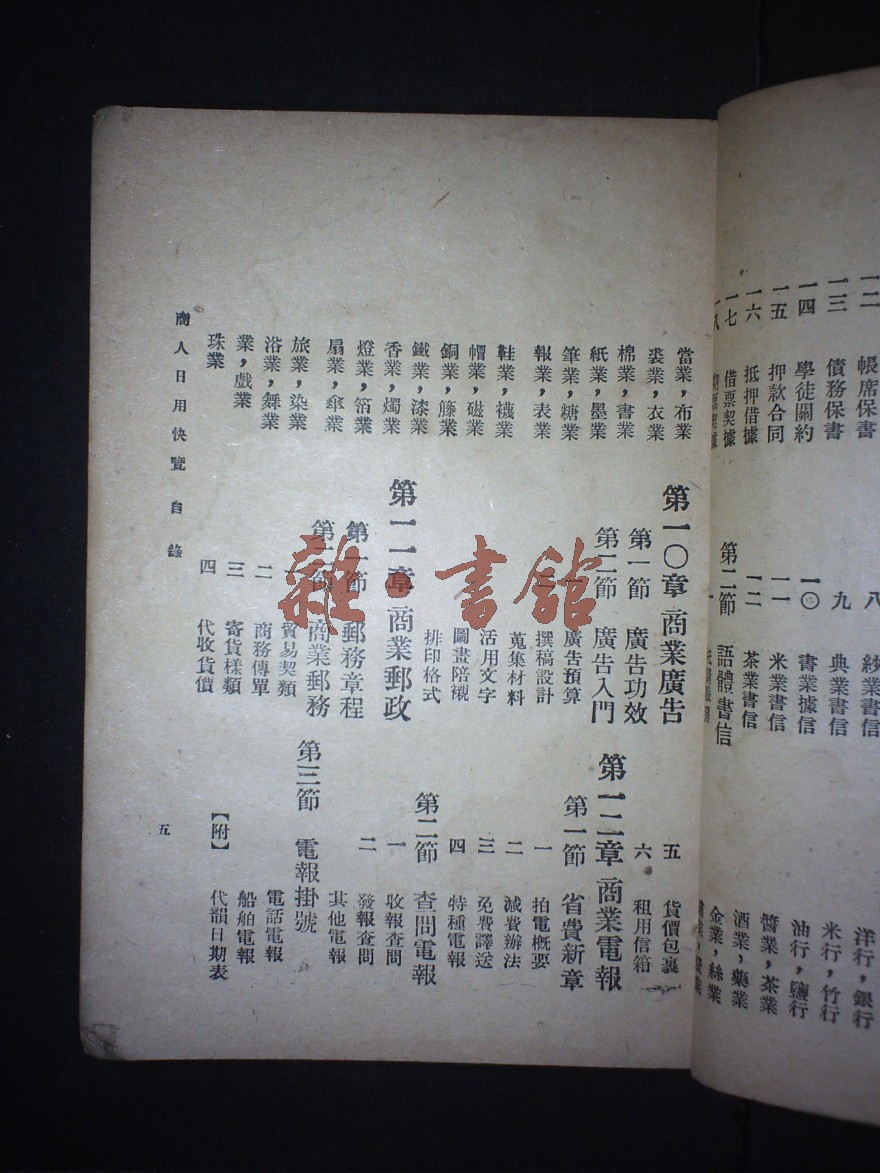 一二 帳席保書
一三 債務保書
一四 學徒關約
一五 押款合同
一六 抵押借據
一七 借票契據
一八
八 紗業書信
九 典業書信
一〇 書業據信
一一 米業書信
一二 茶業書信
第二節 語體書信
一
洋行，銀行
米行，竹行
油行，鹽行
醬業，茶業
酒業，藥業
金業，絲業
當業，布業
裘業，衣業
棉業，書業
紙業，墨業
筆業，糖業
報業，表業
鞋業，襪業
帽業，磁業
銅業，籐業
鐵業，漆業
香業，燭業
燈業，箔業
扇業，傘業
旅業，染業
浴業，舞業
業，戲業
珠業
第一〇章 商業廣告
第一節 廣告功效
第二節 廣告入門
一 廣告預算
二 撰稿設計
蒐集材料
活用文字
圖畫陪襯
排印格式
第一一章 商業郵政
第一節 郵務章程
第二節 商業郵務
一 貿易契類
二 商務傳單
三 寄貨樣類
四 代收貨價
五 貨價包裹
六 租用信箱
第一二章 商業電報
第一節 省費新章
一 拍電概要
二 減費辦法
三 免費譯送
四 特種電報
第二節 查問電報
一 收報查問
二 發報查問
其他電報
第三節 電報掛號
電話電報
船舶電報
【附】 代韻日期表
商人日用快覽 目錄
五
雜·書館